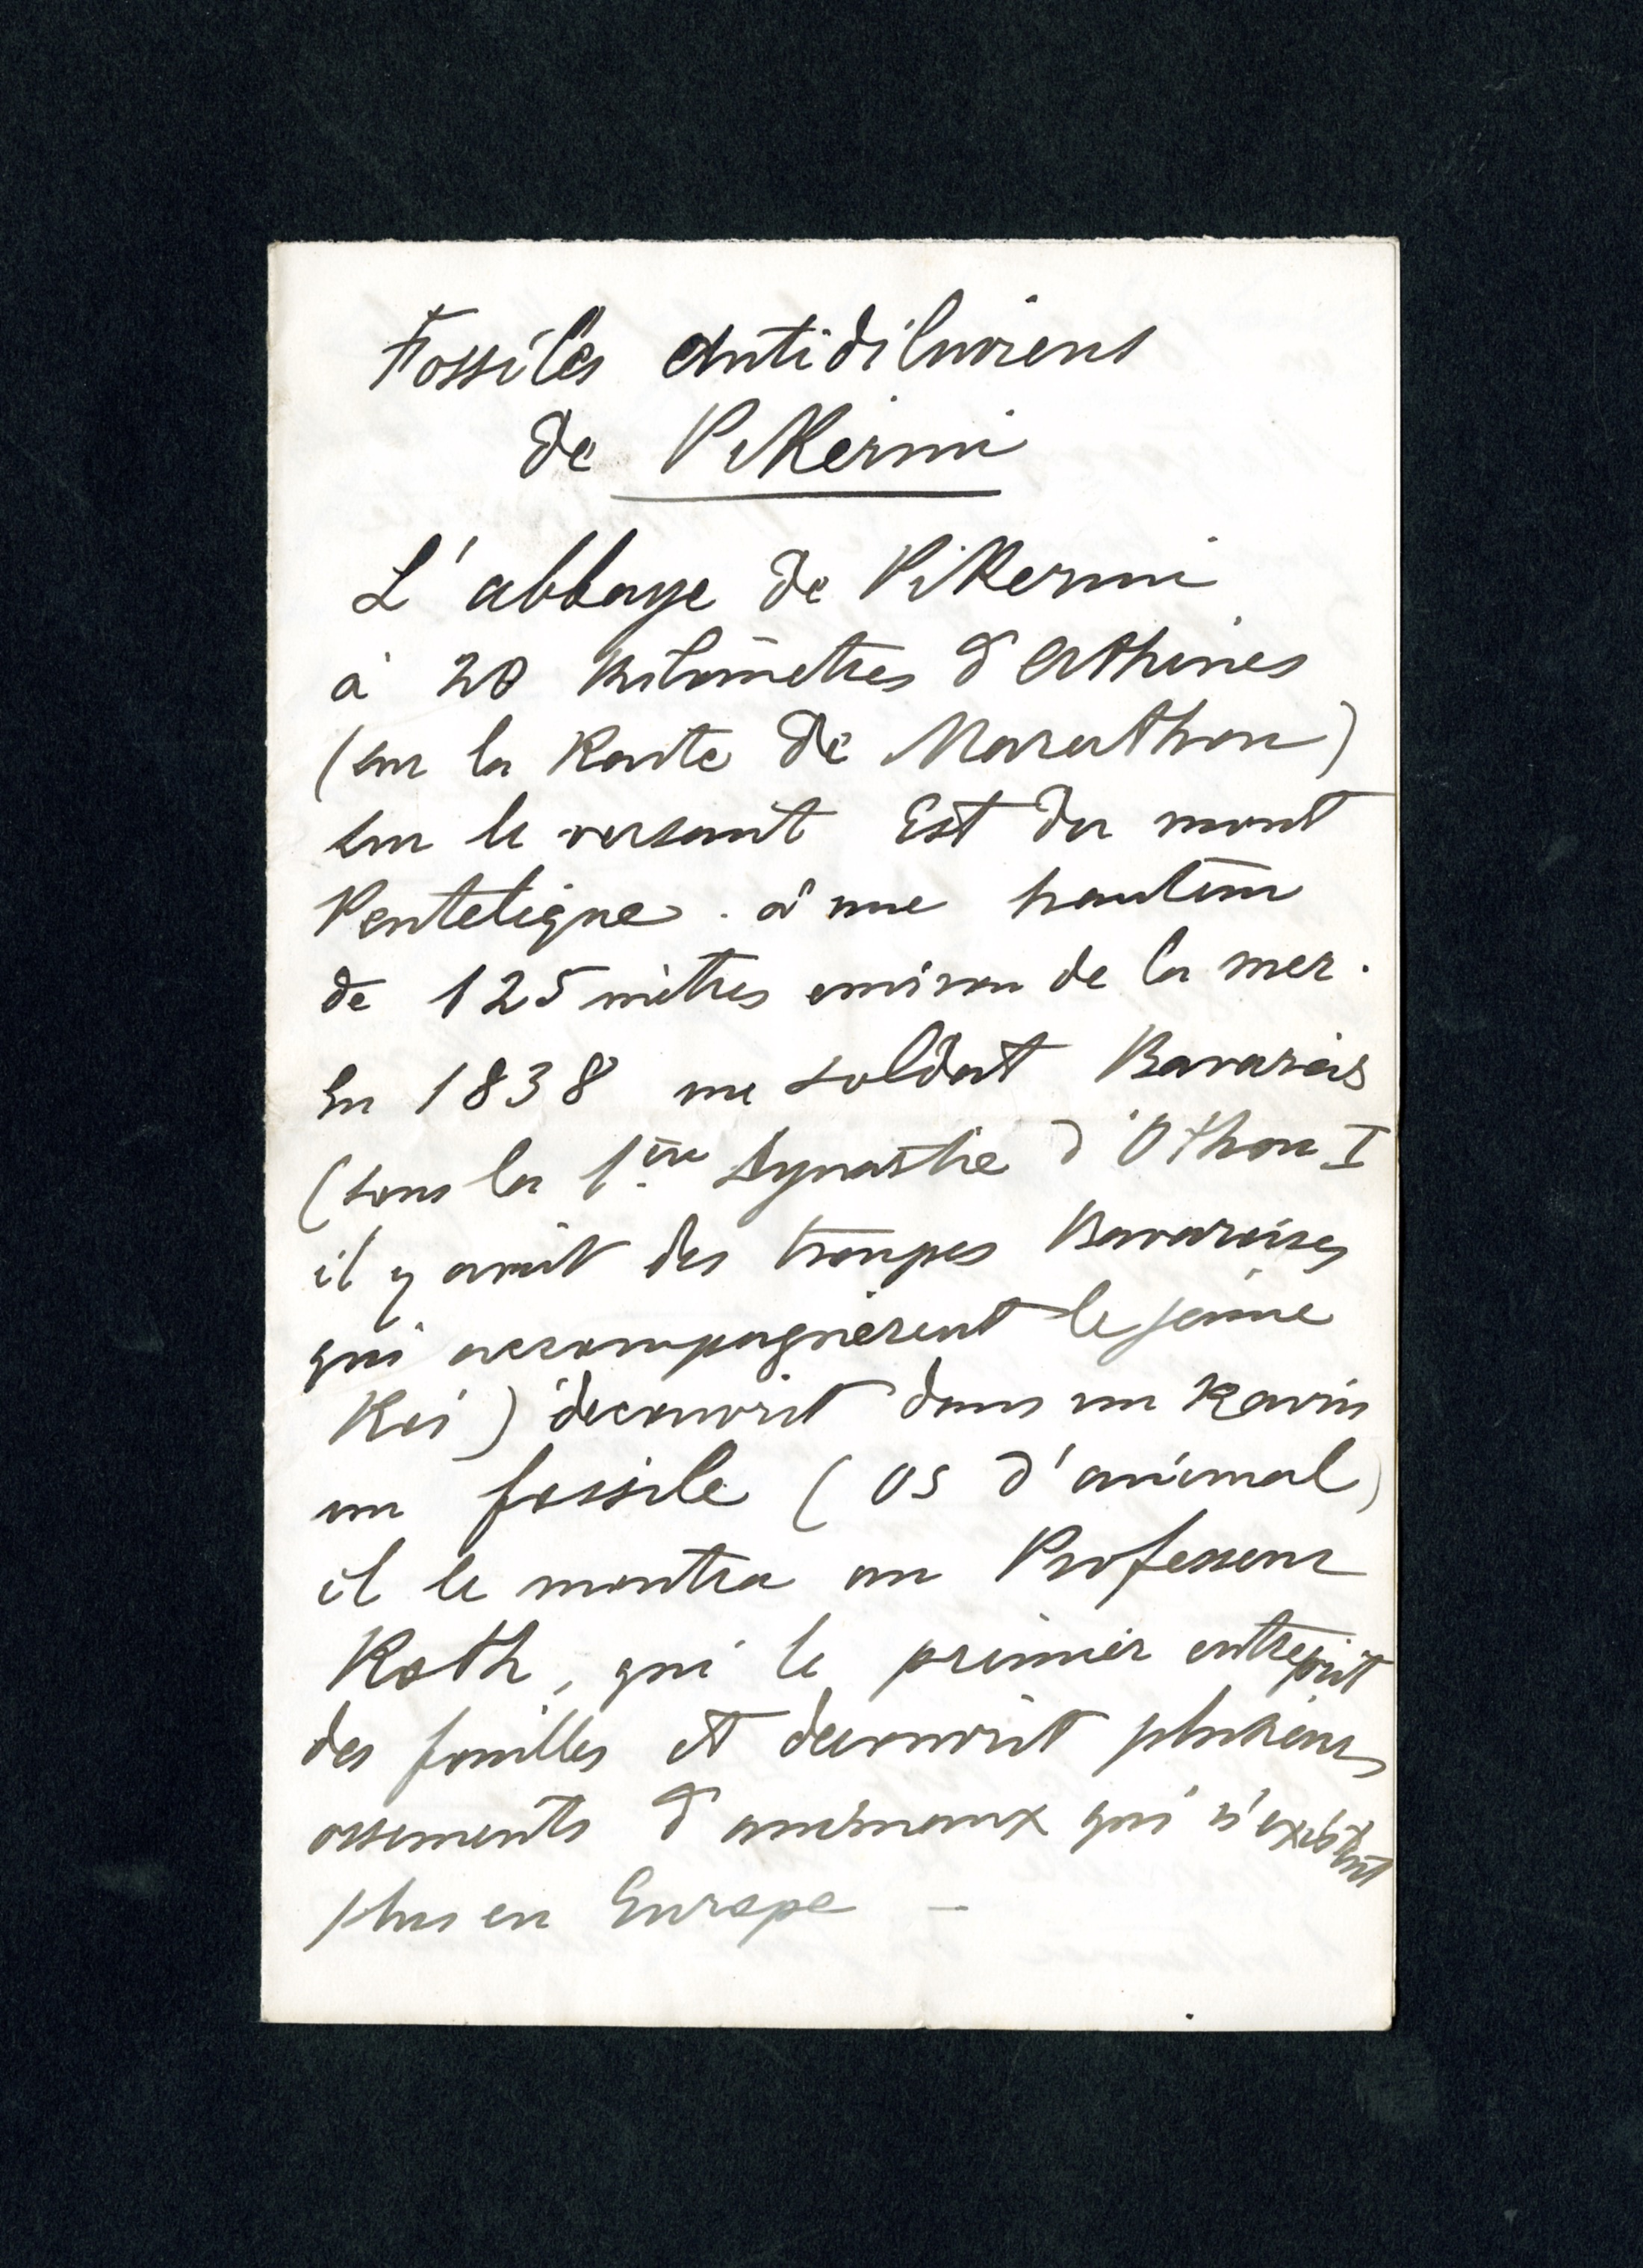 Fossiles Antidiluviens
de Pikermi
L'abbaye de Pikermi
à 20 kilomètres d'Athènes
(sur la Route de Marathon)
sur le versant Est du mont
Penteligue. à une hauteur
de 125 mètres environ de la mer.
En 1838 un soldat Bavarois
(sous la 1ère Dynastie d'Othon I
il y avait des troupes Bavaroises
qui accompagnèrent le jeune
Roi) découvrit dans un Ravin
un fossile (os d'animal)
il le montra au Professeur
Roth, qui le premier entreprit
des fouilles et decouvrit plusieurs
ossements d'animaux qui n'existent
plus en Europe —